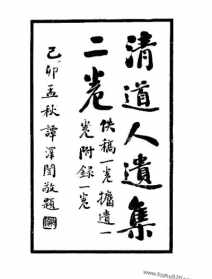 清道人遺集
二卷
佚稿一卷攟遺一
卷附録一卷
己卯孟秋譚澤闓敬題